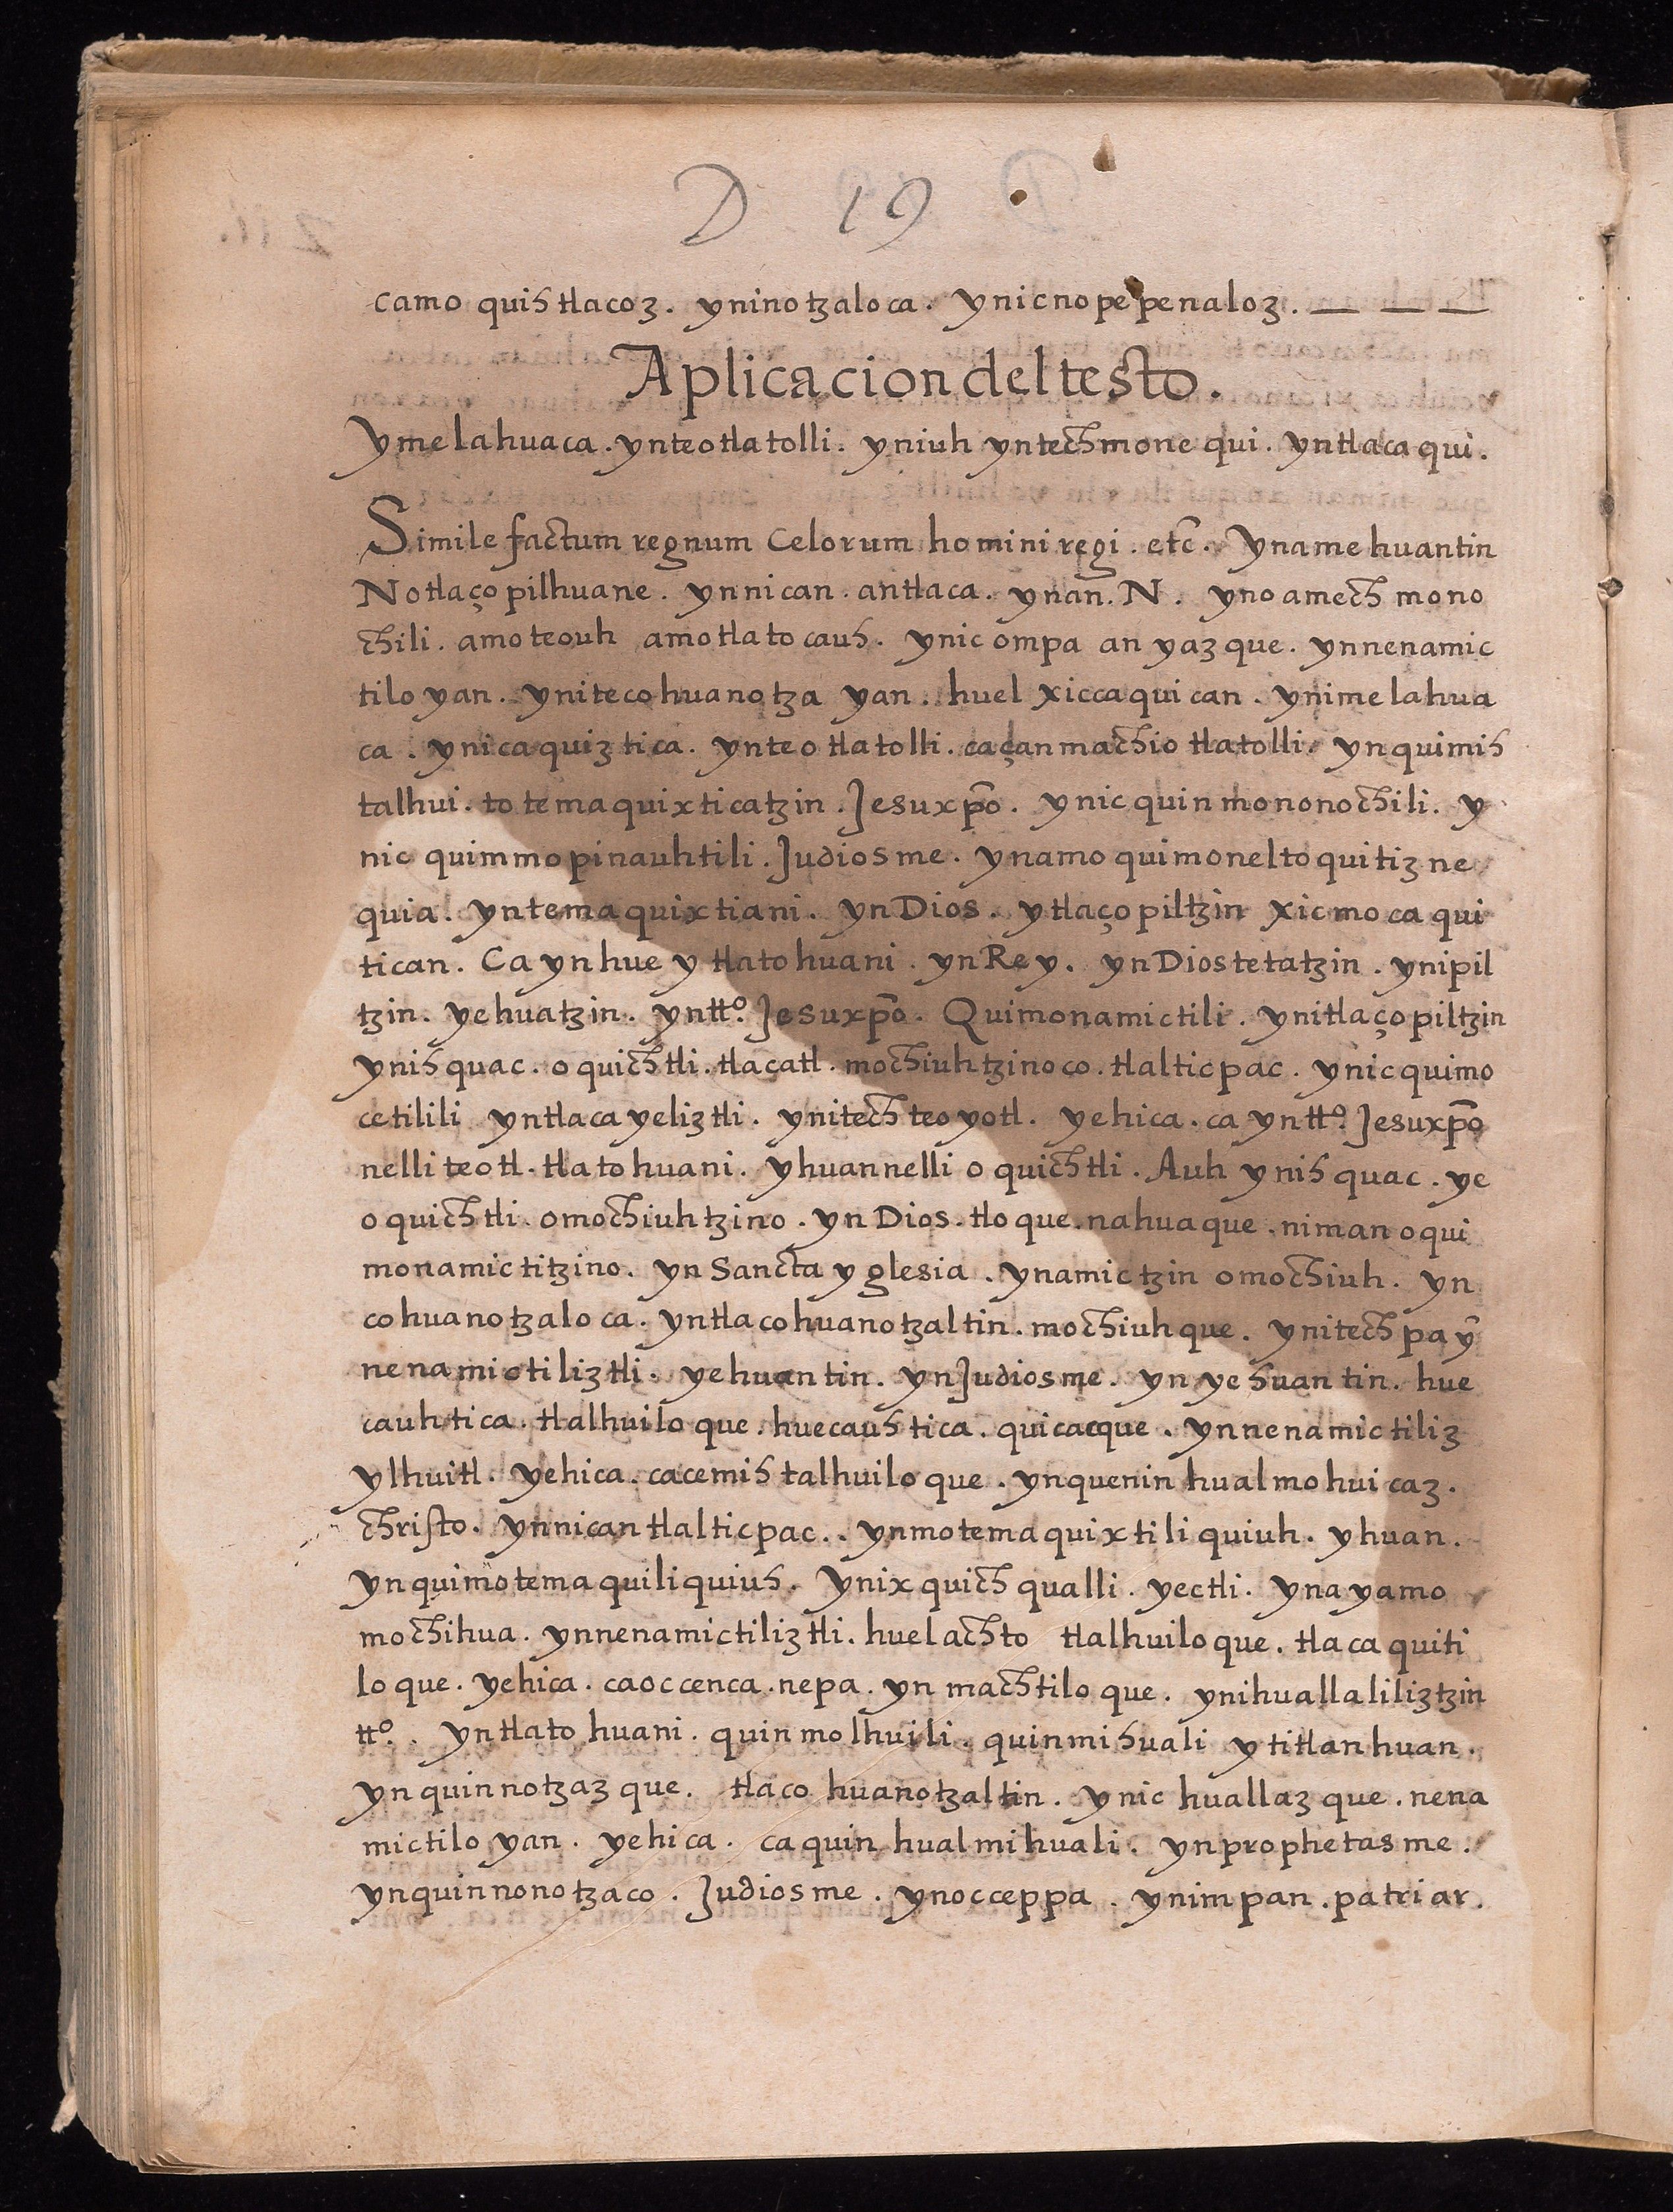 D 19
camo quihtlacoz. yninotzaloca. ynicnopepenaloz. — — —
Aplicacion del testo.
Ymelahuaca. ynteotlatolli. yniuh yntechmonequi. yntlacaqui.
Simile factum regnum Celorum homini regi. etc. Ynamehuantin
Notlaçopilhuane. ynnican. antlaca. ynan. N. ynoamech mono
chili. amoteouh amotlatocauh. ynic ompa an yazque. ynnenamic
tiloyan. ynitecohuanotza yan. huel xiccaquican. ynimelahua
ca. ynicaquiztica. ynteotlatolli. caçanmachiotlatolli. ynquimih
talhui. totemaquixticatzin. Jesuxpõ. ynicquinmononochili. y
nic quimmopinauhtili. Judiosme. ynamo quimoneltoquitizne
quia. yntemaquixtiani. ynDios. ytlaçopiltzin xicmocaqui
tican. Ca ynhuey tlatohuani. ynRey. ynDiostetatzin. ynipil
tzin. yehuatzin. yntto. Jesuxpõ. Quimonamictili. ynitlaçopiltzin
ynihquac. oquichtli. tlacatl. mochiuhtzinoco. tlalticpac. ynicquimo
cetilili yntlacayeliztli. ynitech teoyotl. yehica. ca yntto. Jesuxpõ
nelli teotl. tlatohuani. yhuannelli oquichtli. Auh ynihquac. ye
oquichtli. omochiuhtzino. ynDios. tloque. nahuaque. niman oqui
monamictitzino. yn Sancta yglesia. ynamictzin omochiuh. yn
cohuanotzaloca. yntlacohuanotzaltin. mochiuhque. ynitechpa ỹ
nenamictiliztli. yehuantin. ynJudiosme. yn yehuantin. hue
cauhtica. tlalhuiloque. huecauhtica. quicacque. ynnenamictiliz
ylhuitl. yehica. cacemihtalhuiloque. ynquenin hualmohuicaz.
christo. ynnican tlalticpac.. ynmotemaquixtiliquiuh. yhuan.
ynquimotemaquiliquiuh. ynixquich qualli. yectli. ynayamo
mochihua. ynnenamictiliztli. huelachto tlalhuiloque. tlacaquiti
loque. yehica. caoccenca. nepa. yn machtiloque. ynihuallaliliztzin
tto. yntlatohuani. quinmolhuili. quinmihuali ytitlanhuan.
ynquinnotzazque. tlacohuanotzaltin. ynic huallazque. nena
mictiloyan. yehica. caquin hualmihuali. ynprophetasme.
ynquinnonotzaco. Judiosme. ynocceppa. ynimpan. patriar.